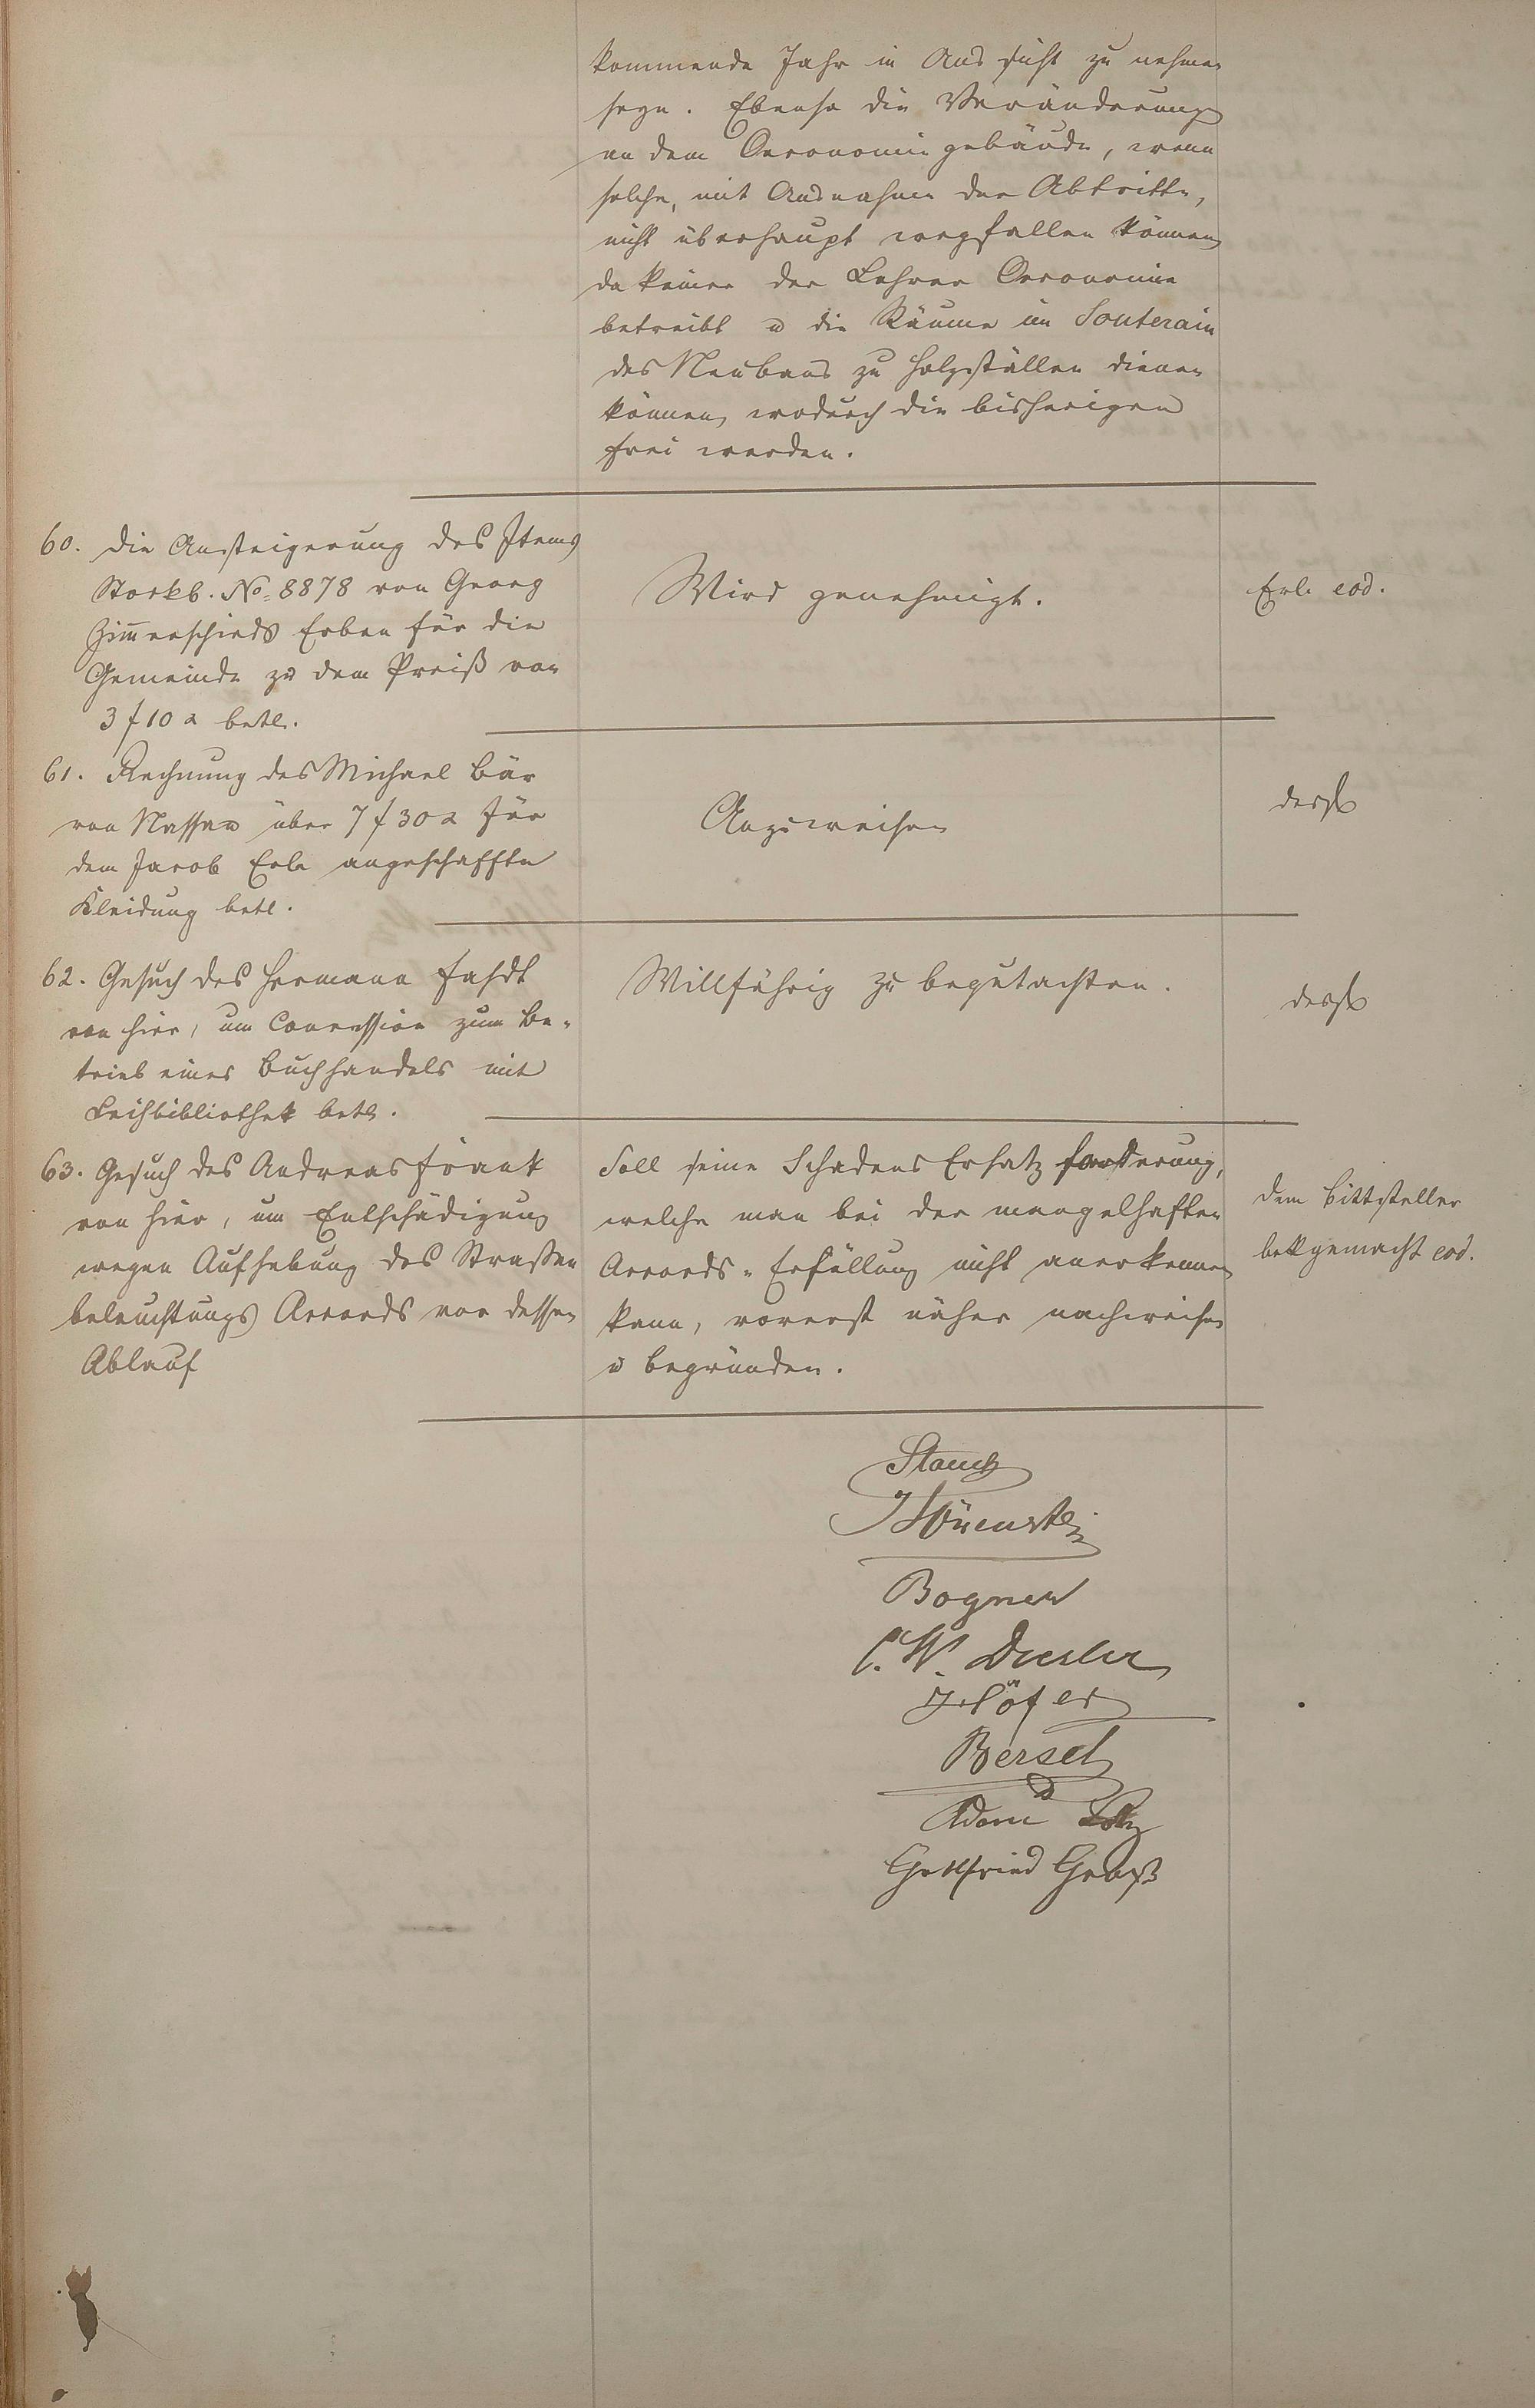 kommende Jahr in Aussicht zu nehmen
seyn. Ebenso die Veränderung
an dem Oeconomiegebäude, wenn
solche, mit Ausnahme der Abtritte,
nicht überhaupt wegfallen können,
da keiner der Lehrer Oeconomie
betreibt u die Räume im Souterain
des Neubaus zu Holzställen dienen
können, wodurch die bisherigen
frei werden.
60. Die Ansteigerung des Items
Stockb. No. 8878 von Georg
Zimerschieds Erben für die
Gemeinde zu dem Preiß von
3 f 10 x betr.
Wird genehmigt.
Erl. eod.
61. Rechnung des Michael Bär
von Nassau über 7 f 30 x für
dem Jacob Erle angeschaffte
Kleidung betr.
Anzuweisen
desgl
62. Gesuch des Hermann Fahdt
von hier, um Concession zum Be-
trieb eines Buchhandels mit
Leihbibliothek betr.
Willfährig zu begutachten.
desgl
63. Gesuch des Andreas Frank
von hier, um Entschädigung
wegen Aufhebung des Strassen
beleuchtungs Accords vor dessen
Ablauf
Soll seine Schadens Ersatz forderung,
welche man bei der mangelhaften
Accords-Erfüllung nicht anerkennen
kann, vorerst näher nachweisen
u begründen.
dem Bittsteller
bekt gemacht eod.
Bogner
C. W.
J. Höfer
Adam
Gottfried